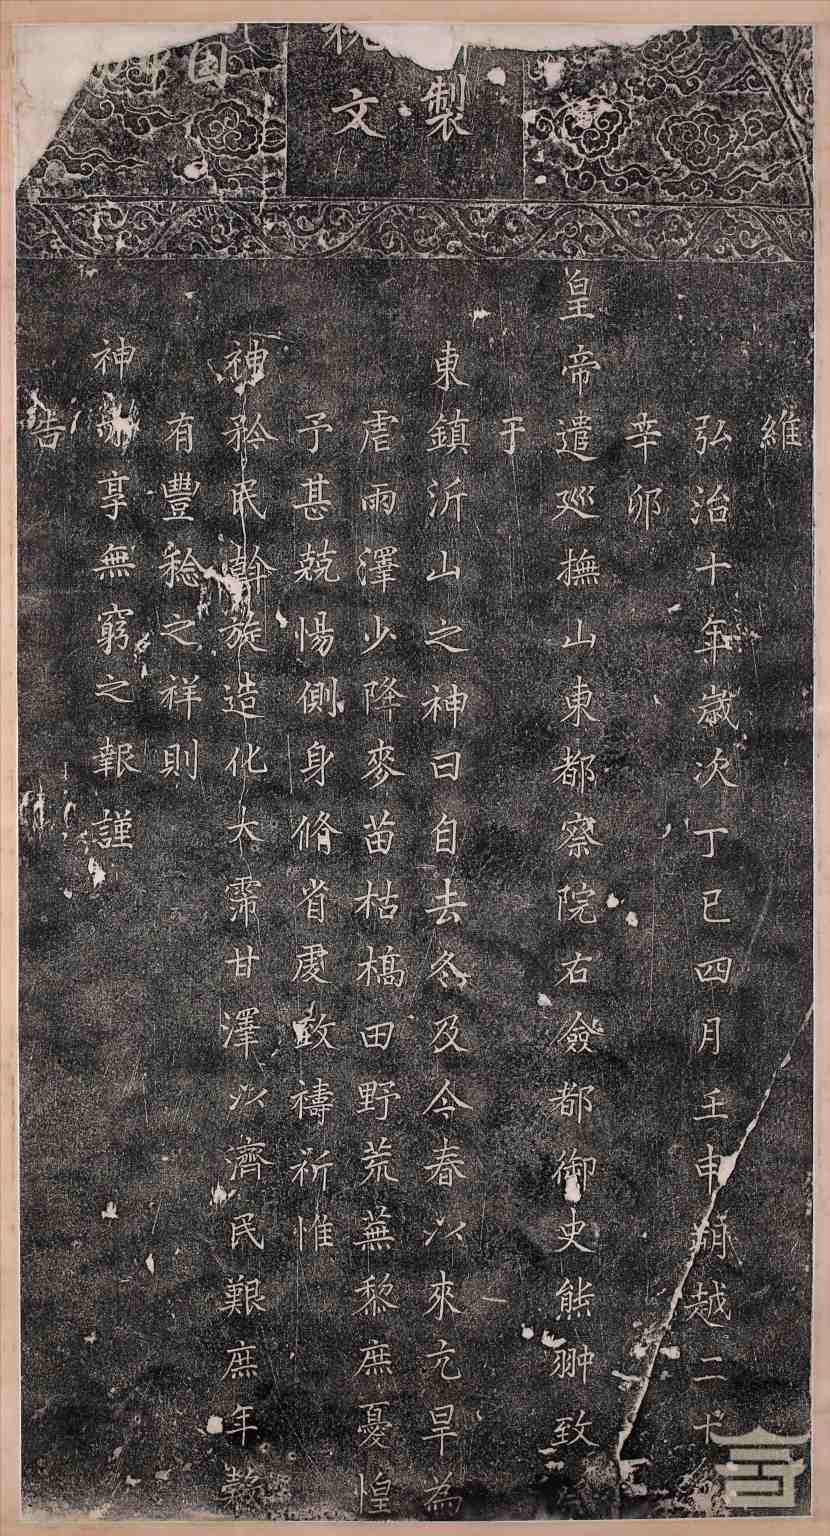 製
祝文
国
維
弘治十年歲次丁巳四月壬申朔越二十
辛卯
皇帝遣巡撫山東都察院右僉都御史熊翀致
于
東鎮沂山之神曰自去冬及今春以來亢旱為
虐雨澤少降麥苗枯槁田野荒蕪黎庶憂惶
予甚兢惕側身脩省虔致禱祈惟
神矜民斡旋造化大霈甘澤以濟民艱庶年穀
有豐稔之祥則
神亦享無窮之報謹
告